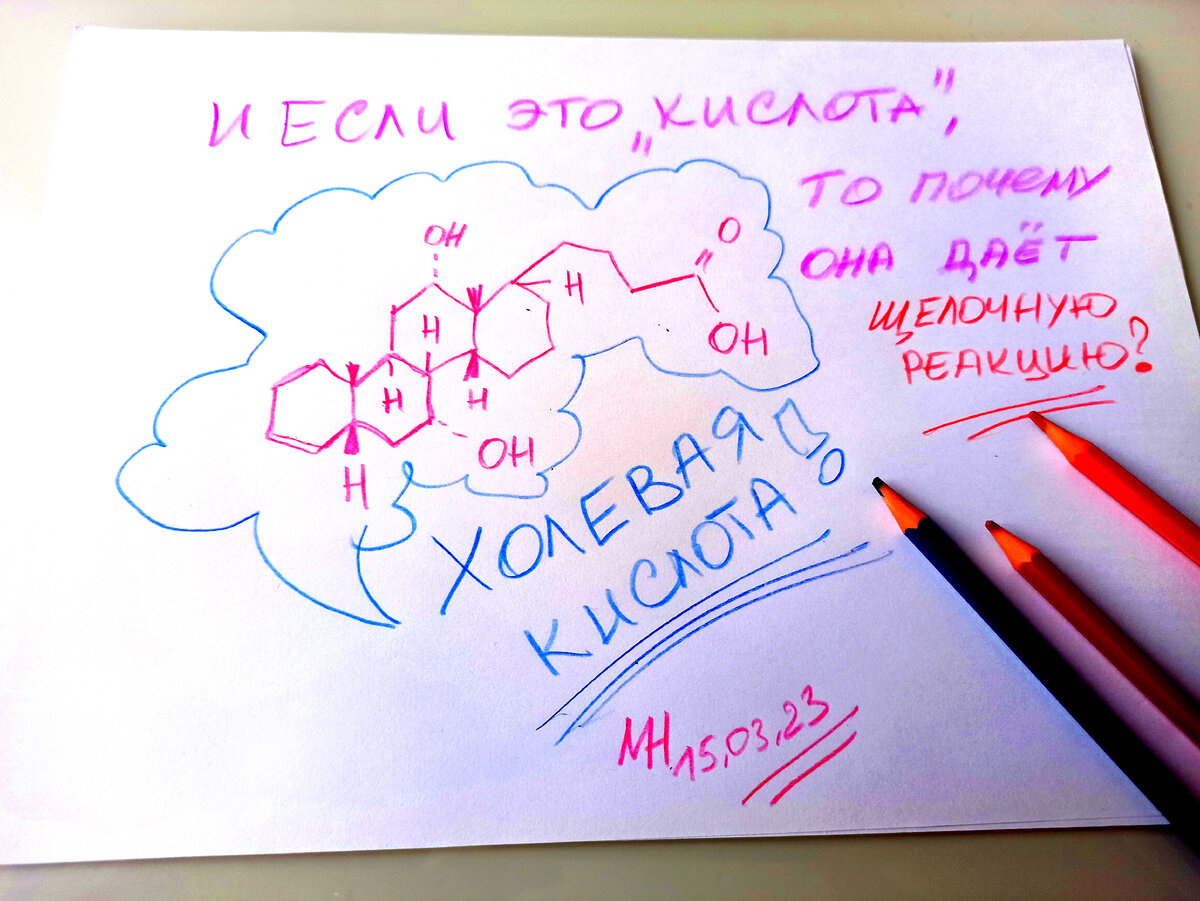 И ЕСЛИ ЭТО „КИСЛОТА”,
ТО ПОЧЕМУ
ОНА ДАЁТ
ЩЕЛОЧНУЮ
РЕАКЦИЮ?
OH
H
O
OH
H
H
H
OH
H
ХОЛЕВАЯ
КИСЛОТА!
МН 15,03,23